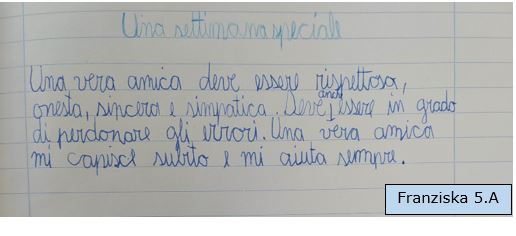 Una settimana speciale
Una vera amica deve essere rispettosa,
onesta, sincera e simpatica. Deve anche essere in grado
di perdonare gli errori. Una vera amica
mi capisce subito e mi aiuta sempre.
Franziska 5.A